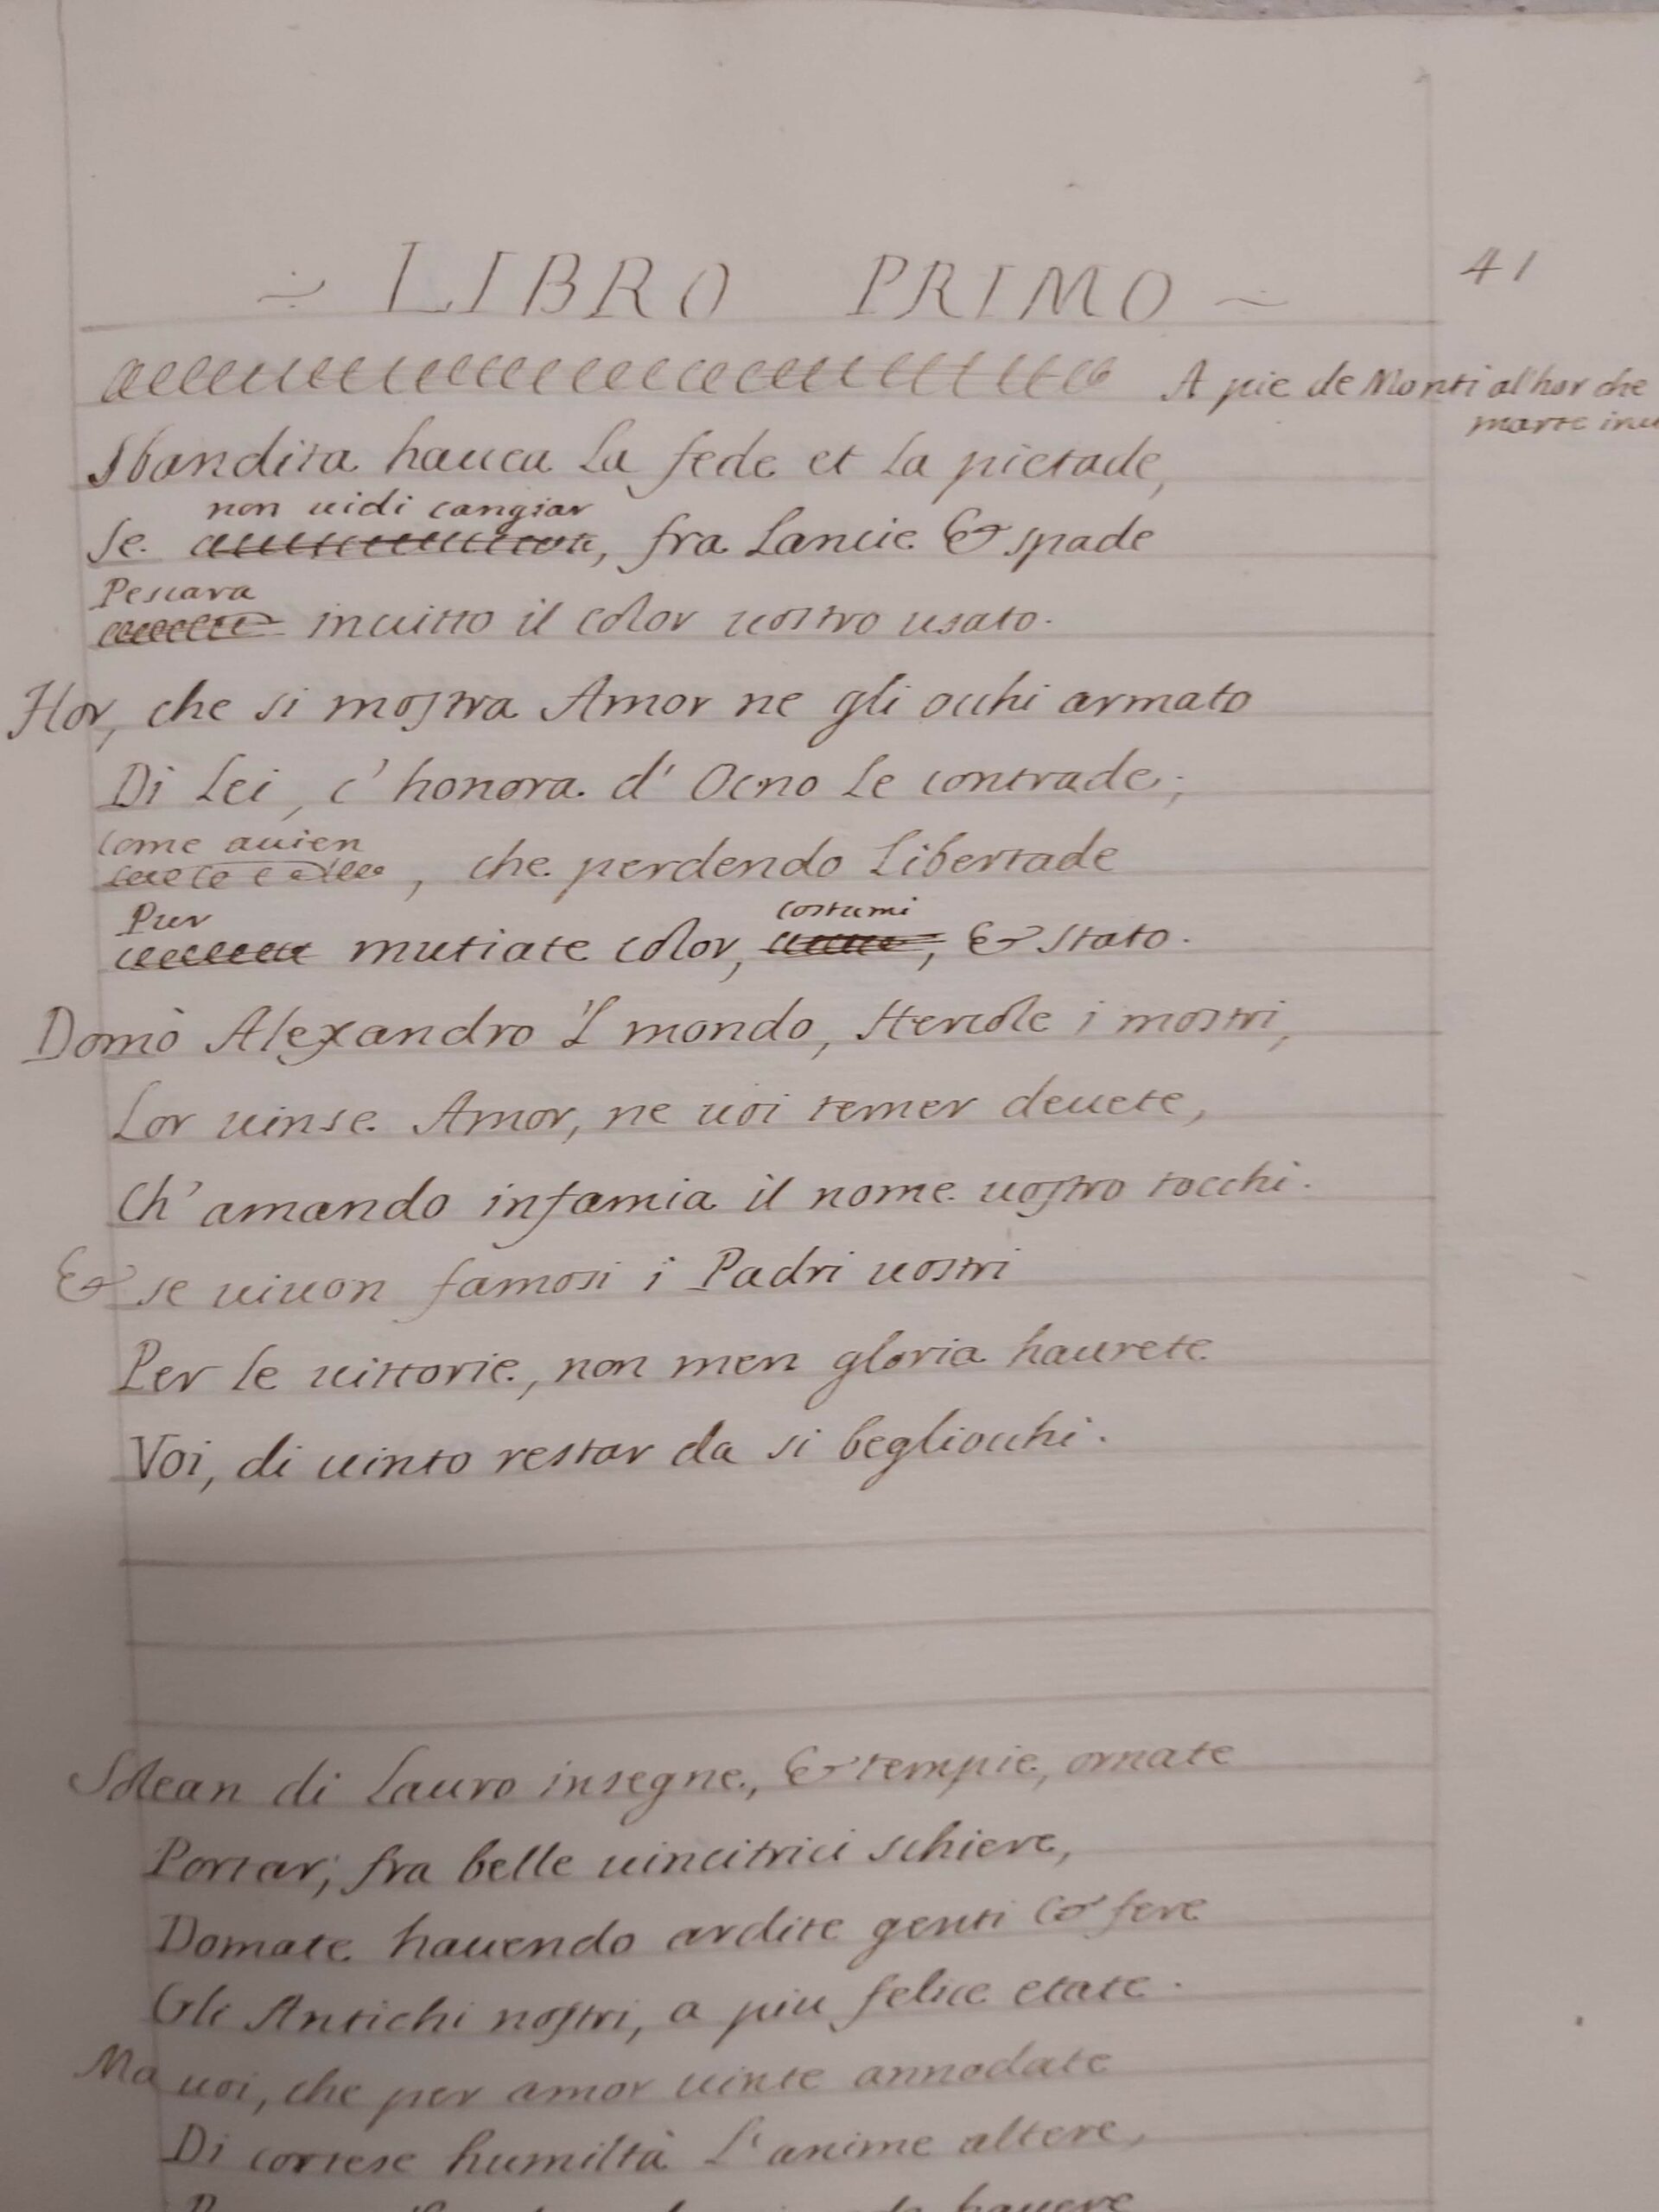 LIBRO PRIMO
41
A pie de Monti al'hor che
marte
Sbandita hauea la fede et la pietade,
non uidi cangiar
Se, fra Lancie & spade
Pescara
inuitto il color uostro usato.
Hor, che si mostra Amor ne gli occhi armato
Di Lei, c'honora d'Ocno le contrade;
come auien
, che perdendo Libertade
Pur costumi
mutiate color, , & stato.
Domò Alexandro 'L mondo, Hercole i mostri,
Lor uinse Amor, ne uoi temer deuete,
Ch'amando infamia il nome uostro tocchi.
& se uiuon famosi i Padri uostri
Per le uittorie, non men gloria haurete
Voi, di uinto restar da si begliocchi.
Solean di Lauro insegne, & tempie, ornate
Portar, fra belle uincitrici schiere,
Domate hauendo ardite genti & fere
Gli Antichi nostri, a piu felice etate.
Ma uoi, che per amor uinte annodate
Di cortese humiltà L'anime altere,
hauere